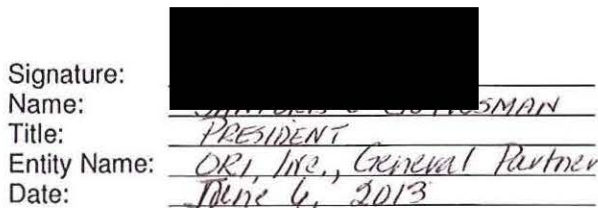 Signature:
Name:
Title: PRESIDENT
Entity Name: ORI, Inc., General Partner
Date: June 6, 2013